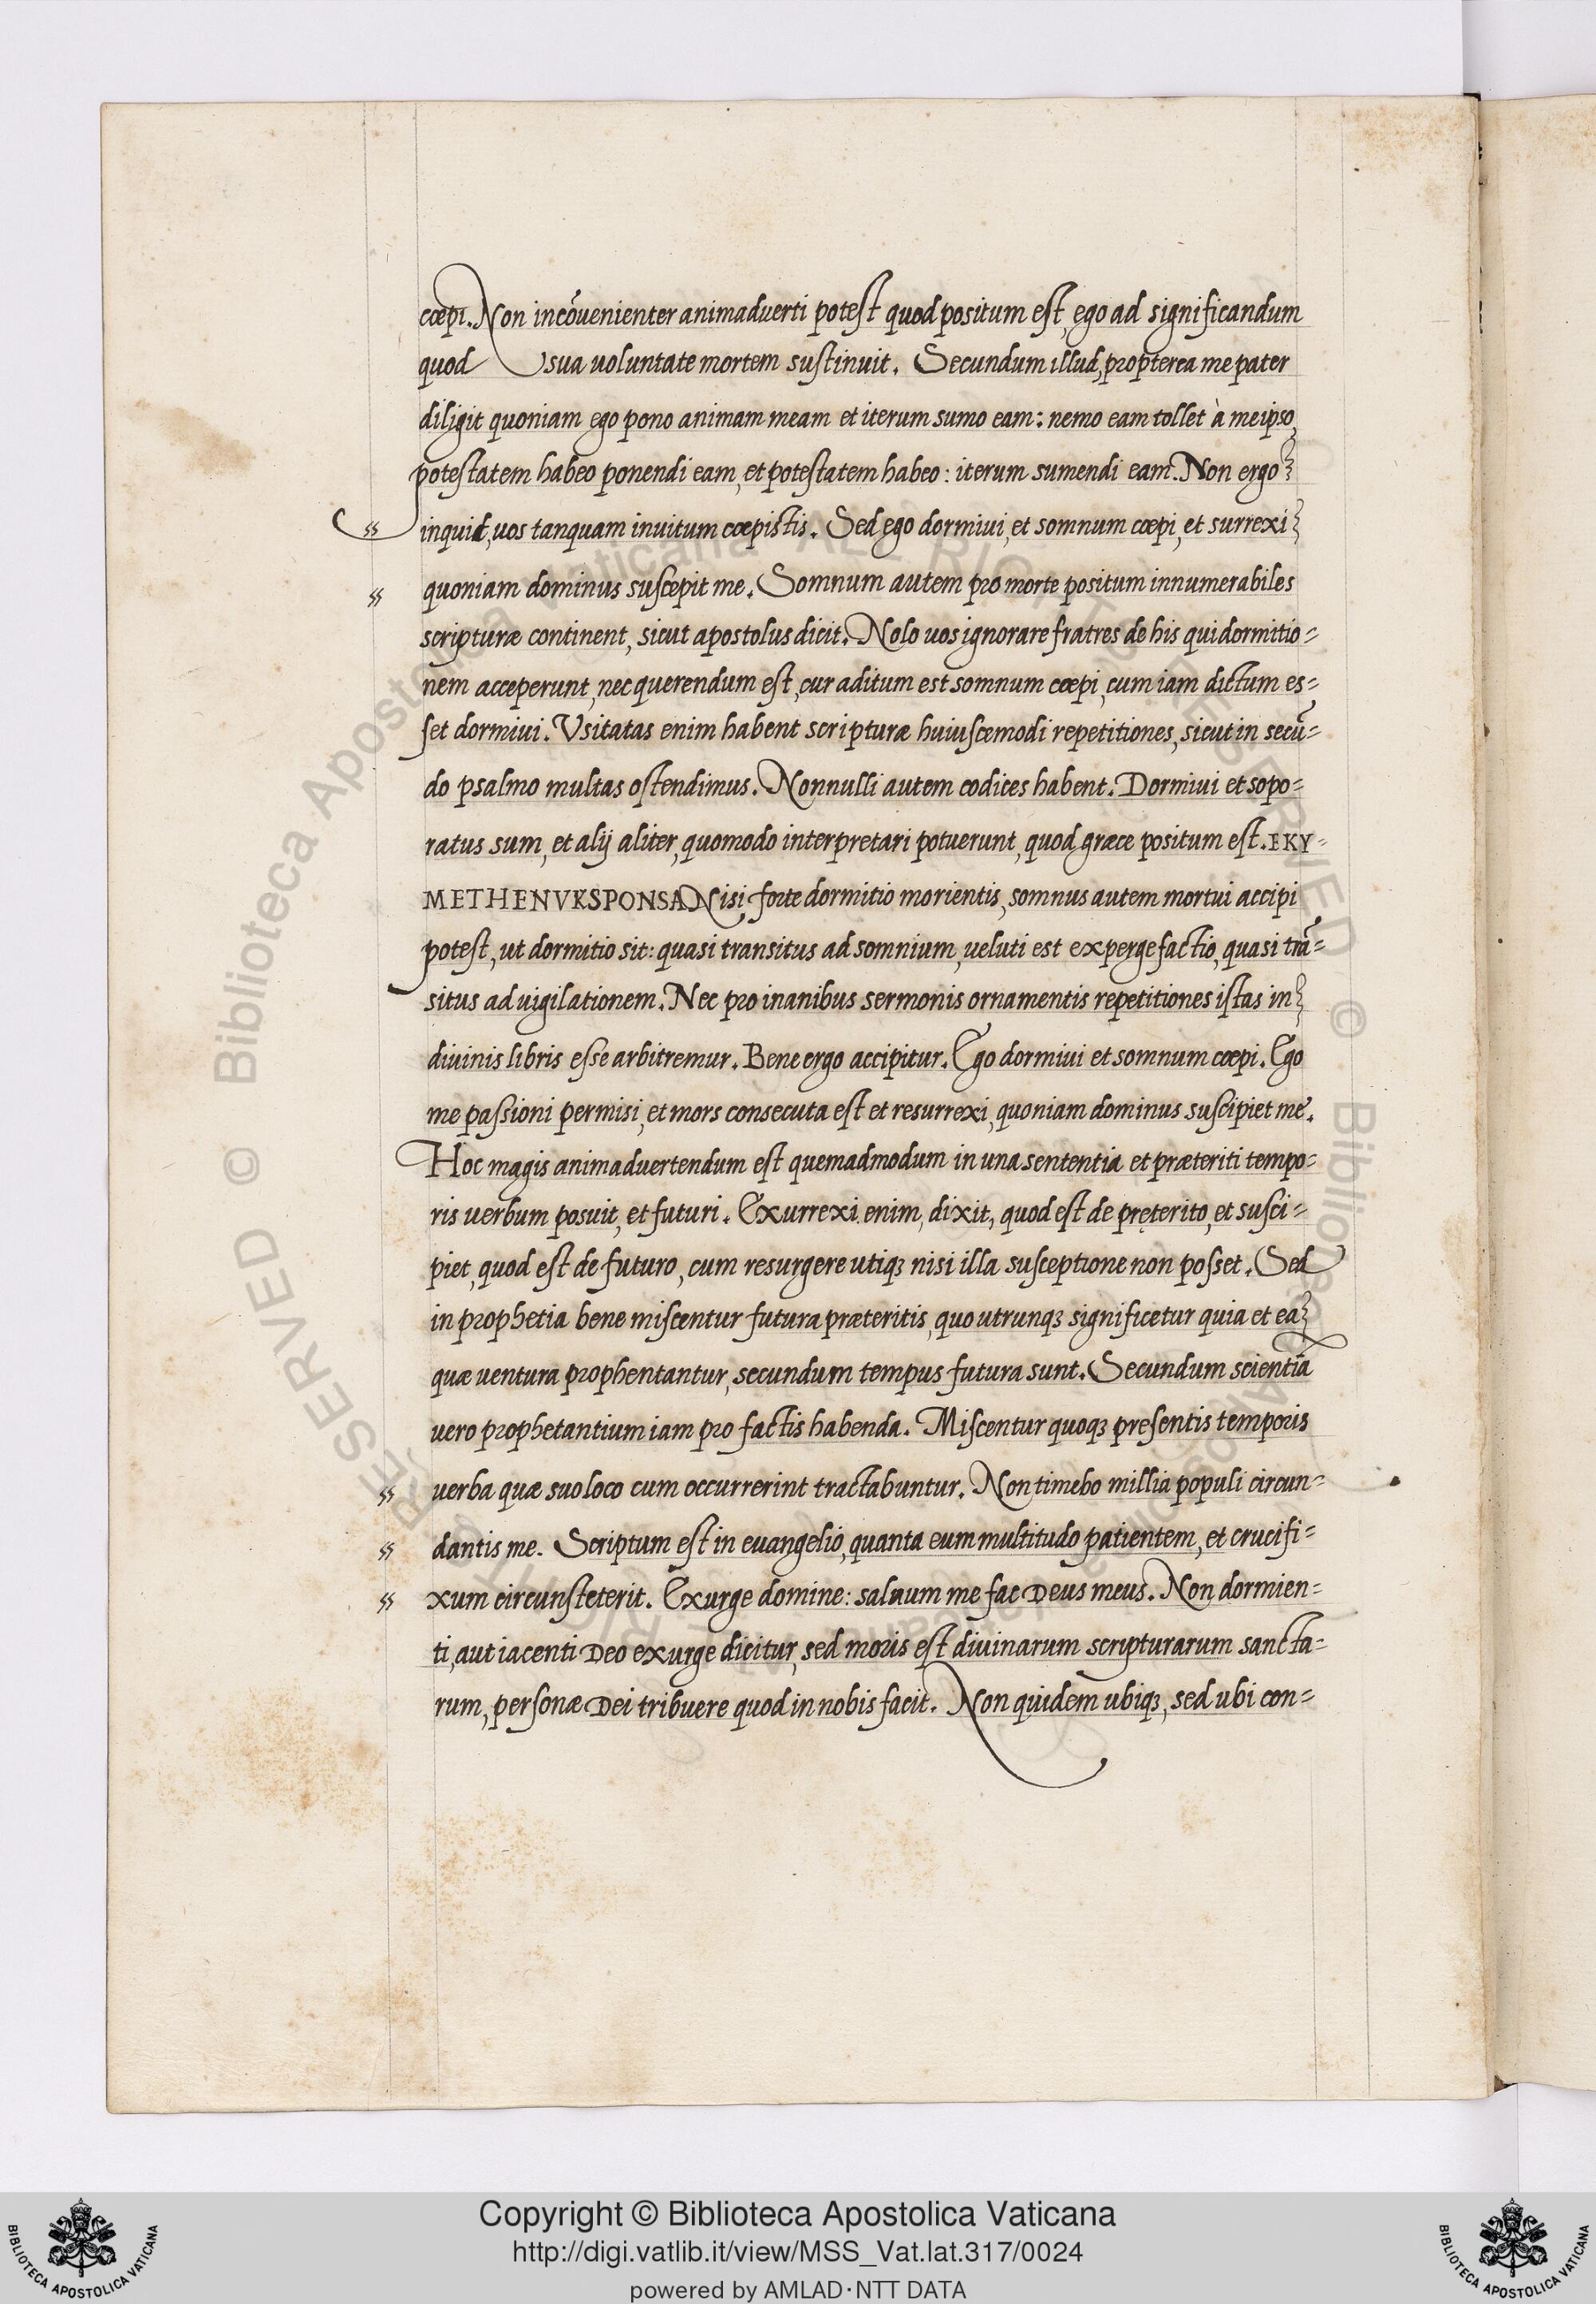 cœpi. Non incõuenienter animaduerti potest quod positum est, ego ad significandum
quod sua uoluntate mortem sustinuit. Secundum illud, propterea me pater
diligit quoniam ego pono animam meam et iterum sumo eam: nemo eam tollet à meipso,
potestatem habeo ponendi eam, et potestatem habeo: iterum sumendi eam. Non ergo
inquid, uos tanquam inuitum cœpistis. Sed ego dormiui, et somnum cœpi, et surrexi
quoniam dominus suscepit me. Somnum autem pro morte positum innumerabiles
scripturæ continent, sicut apostolus dicit. Nolo uos ignorare fratres de his qui dormitio=
nem acceperunt, nec querendum est, cur aditum est somnum cœpi, cum iam dictum es=
set dormiui. Vsitatas enim habent scripturæ huiuscemodi repetitiones, sicut in secũ=
do psalmo multas ostendimus. Nonnulli autem codices habent. Dormiui et sopo=
ratus sum, et alij aliter, quomodo interpretari potuerunt, quod græce positum est. EKY=
METHENVKSPONSA Nisi forte dormitio morientis, somnus autem mortui accipi
potest, ut dormitio sit: quasi transitus ad somnium, ueluti est expergefactio, quasi trã=
situs ad uigilationem. Nec pro inanibus sermonis ornamentis repetitiones istas in
diuinis libris esse arbitremur. Bene ergo accipitur. Ego dormiui et somnum cœpi. Ego
me passioni permisi, et mors consecuta est et resurrexi, quoniam dominus suscipiet me.
Hoc magis animaduertendum est quemadmodum in una sententia et præteriti tempo=
ris uerbum posuit, et futuri. Exurrexi enim, dixit, quod est de pręterito, et susci=
piet, quod est de futuro, cum resurgere utiqꝫ nisi illa susceptione non posset. Sed
in prophetia bene miscentur futura præteritis, quo utrunqꝫ significetur quia et ea
quæ uentura prophentantur, secundum tempus futura sunt. Secundum scientiã
uero prophetantium iam pro factis habenda. Miscentur quoqꝫ presentis temporis
uerba quæ suo loco cum occurrerint tractabuntur. Non timebo millia populi circun=
dantis me. Scriptum est in euangelio, quanta eum multitudo patientem, et crucifi=
xum circunsteterit. Exurge domine: saluum me fac Deus meus. Non dormien=
ti, aut iacenti Deo exurge dicitur, sed moris est diuinarum scripturarum sancta=
rum, personæ Dei tribuere quod in nobis facit. Non quidem ubiqꝫ, sed ubi con=
Copyright © Biblioteca Apostolica Vaticana
http://digi.vatlib.it/view/MSS_Vat.lat.317/0024
powered by AMLAD·NTT DATA